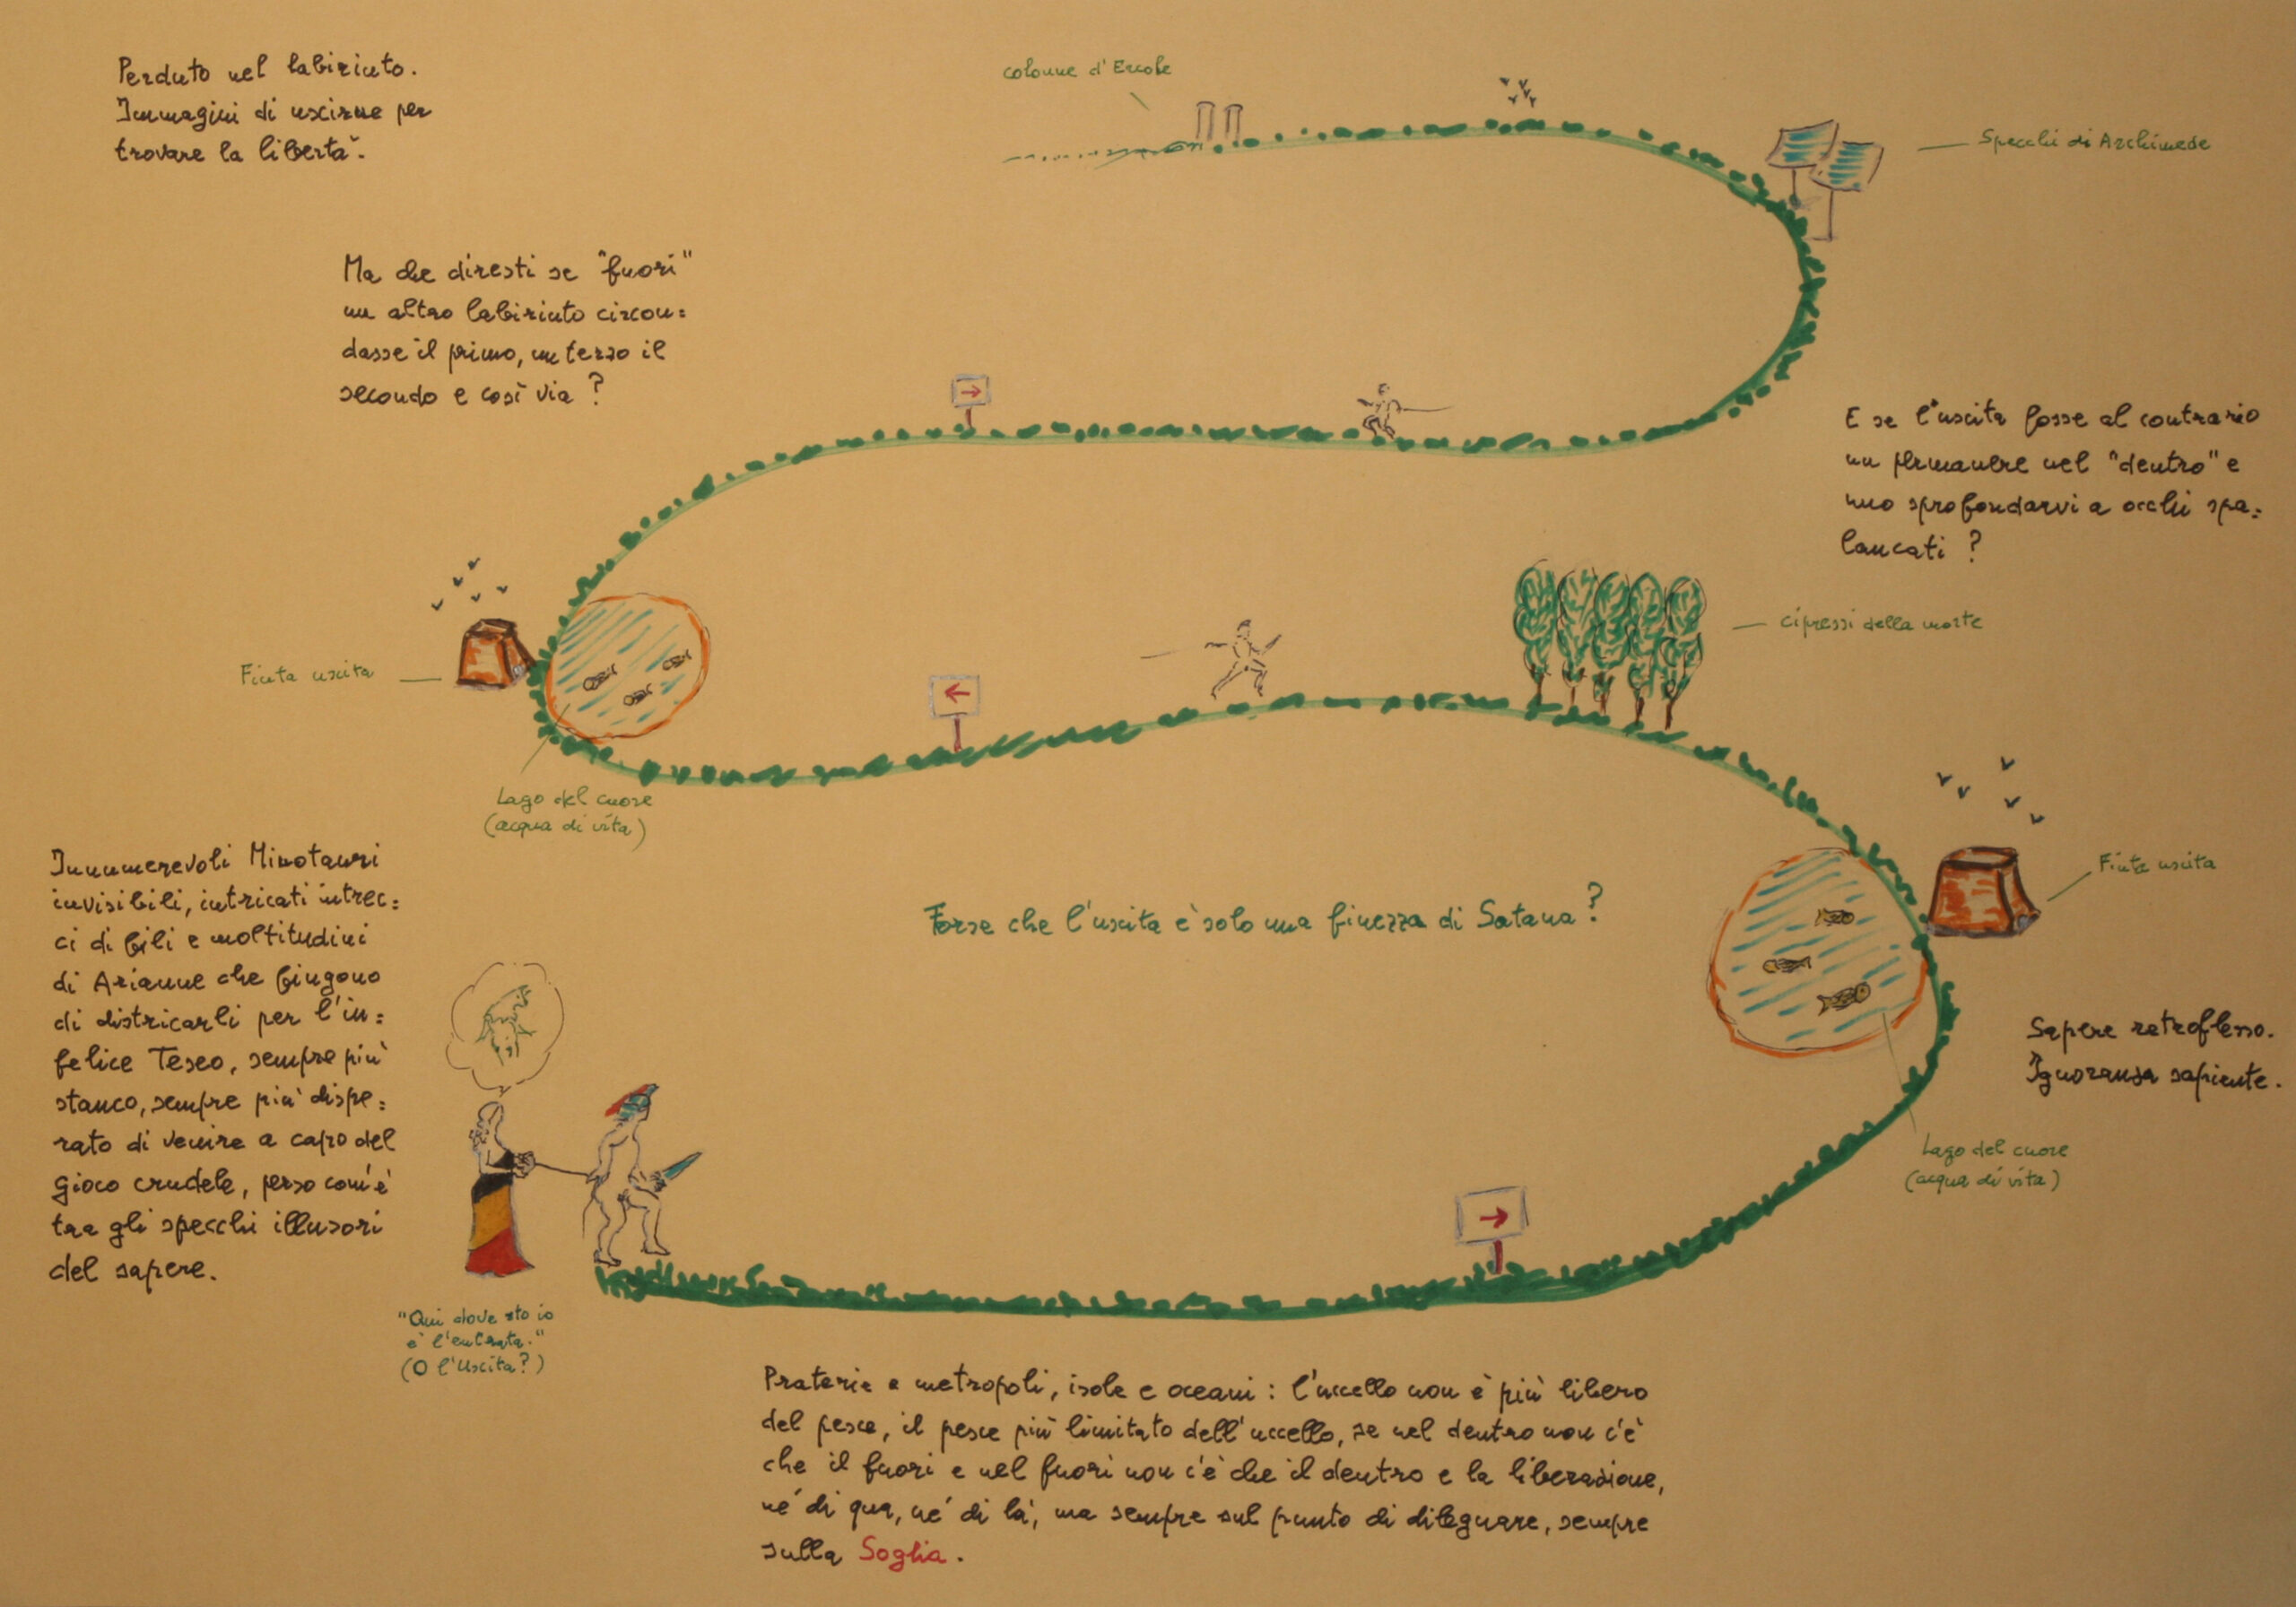 Perduto nel labirinto.
Immagini di uscirne per
trovare la libertà.
colonne d'Ercole
Specchi di Archimede
Ma che diresti se "fuori"
un altro labirinto circon=
dasse il primo, un terzo il
secondo e così via?
E se l'uscita fosse al contrario
un permanere nel "dentro" e
uno sprofondarvi a occhi spa=
lancati?
cipressi della morte
Finta uscita
Lago del cuore
(acqua di vita)
Innumerevoli Minotauri
invisibili, intricati intrec=
ci di fili e moltitudini
di Arianne che fingono
di districarli per l'in=
felice Teseo, sempre più
stanco, sempre più dispe=
rato di venire a capo del
gioco crudele, perso com'è
tra gli specchi illusori
del sapere.
Forse che l'uscita è solo una finezza di Satana?
Finta uscita
Sapere retroflesso.
Ignoranza sapiente.
Lago del cuore
(acqua di vita)
"Qui dove sto io
è l'entrata."
(O l'Uscita?)
Praterie e metropoli, isole e oceani: l'uccello non è più libero
del pesce, il pesce più limitato dell'uccello, se nel dentro non c'è
che il fuori e nel fuori non c'è che il dentro e la liberazione,
né di qua, né di là, ma sempre sul punto di dileguare, sempre
sulla Soglia.